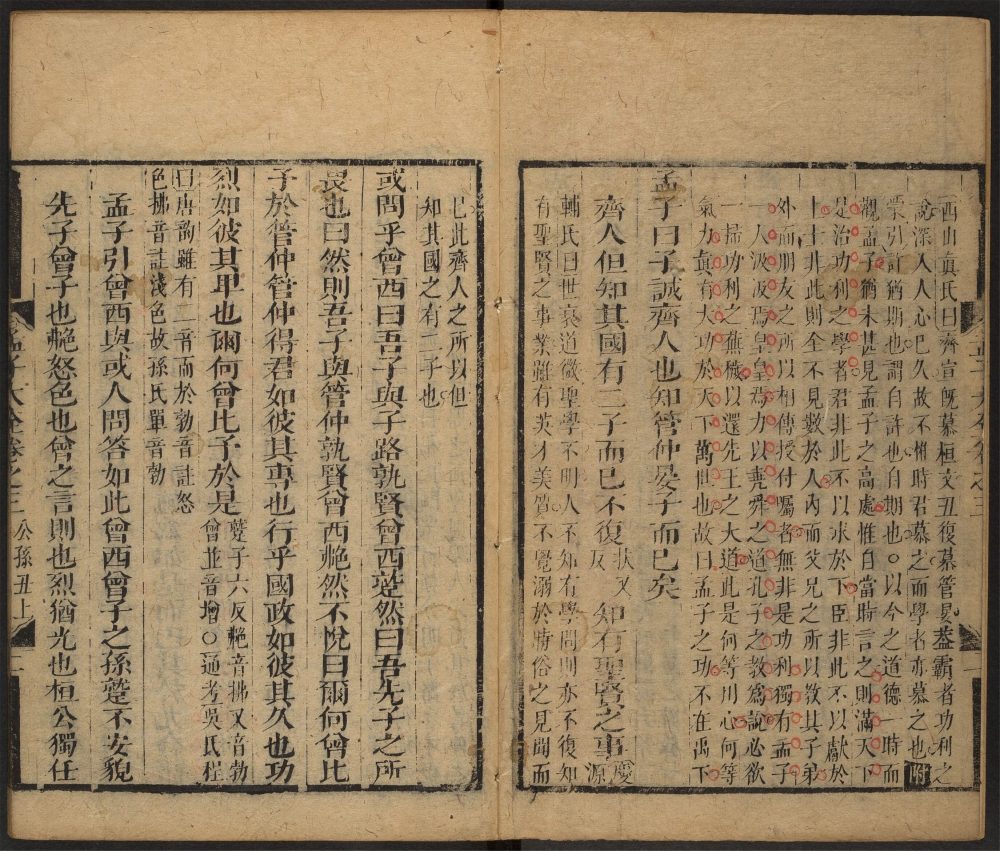 西山眞氏曰齊宣旣慕桓文丑復慕管晏葢霸者功利之
說深入人心已久故不惟時君慕之而學者亦慕之也附
蒙引許猶期也謂自許也自期也○以今之道德一時而
觀孟子猶未甚見孟子之高處惟自當時言之則滿天下
是治功利之學者君非此不以求於下臣非此不以獻於
上士非此則全不見數於人內而父兄之所以敎其子弟
外而朋友之所以相傳授付囑者無非是功利獨有孟子
一人汲汲焉皇皇焉力以堯舜之道孔子之敎爲說必欲
一掃功利之蕪穢以還先王之大道此是何等用心何等
氣力眞有大功於天下萬世也故曰孟子之功不在禹下
孟子曰子誠齊人也知管仲晏子而已矣
齊人但知其國有二子而已不復扶又反知有聖賢之事慶源
輔氏曰世衰道微聖學不明人不知有學問則亦不復知
有聖賢之事業雖有英才美質不覺溺於時俗之見聞而
已此齊人之所以但
知其國之有二子也
或問乎曾西曰吾子與子路孰賢曾西蹵然曰吾先子之所
畏也曰然則吾子與管仲孰賢曾西艴然不悅曰爾何曾比
予於管仲管仲得君如彼其專也行乎國政如彼其久也功
烈如彼其卑也爾何曾比予於是蹵子六反艴音拂又音勃
曾並音增○通考吳氏程
曰唐韻雖有二音而於勃音註怒
色拂音註淺色故孫氏單音勃
孟子引曾西與或人問答如此曾西曾子之孫蹵不安貌
先子曾子也艴怒色也曾之言則也烈猶光也桓公獨任
孟子大全卷之三 公孫丑上 一